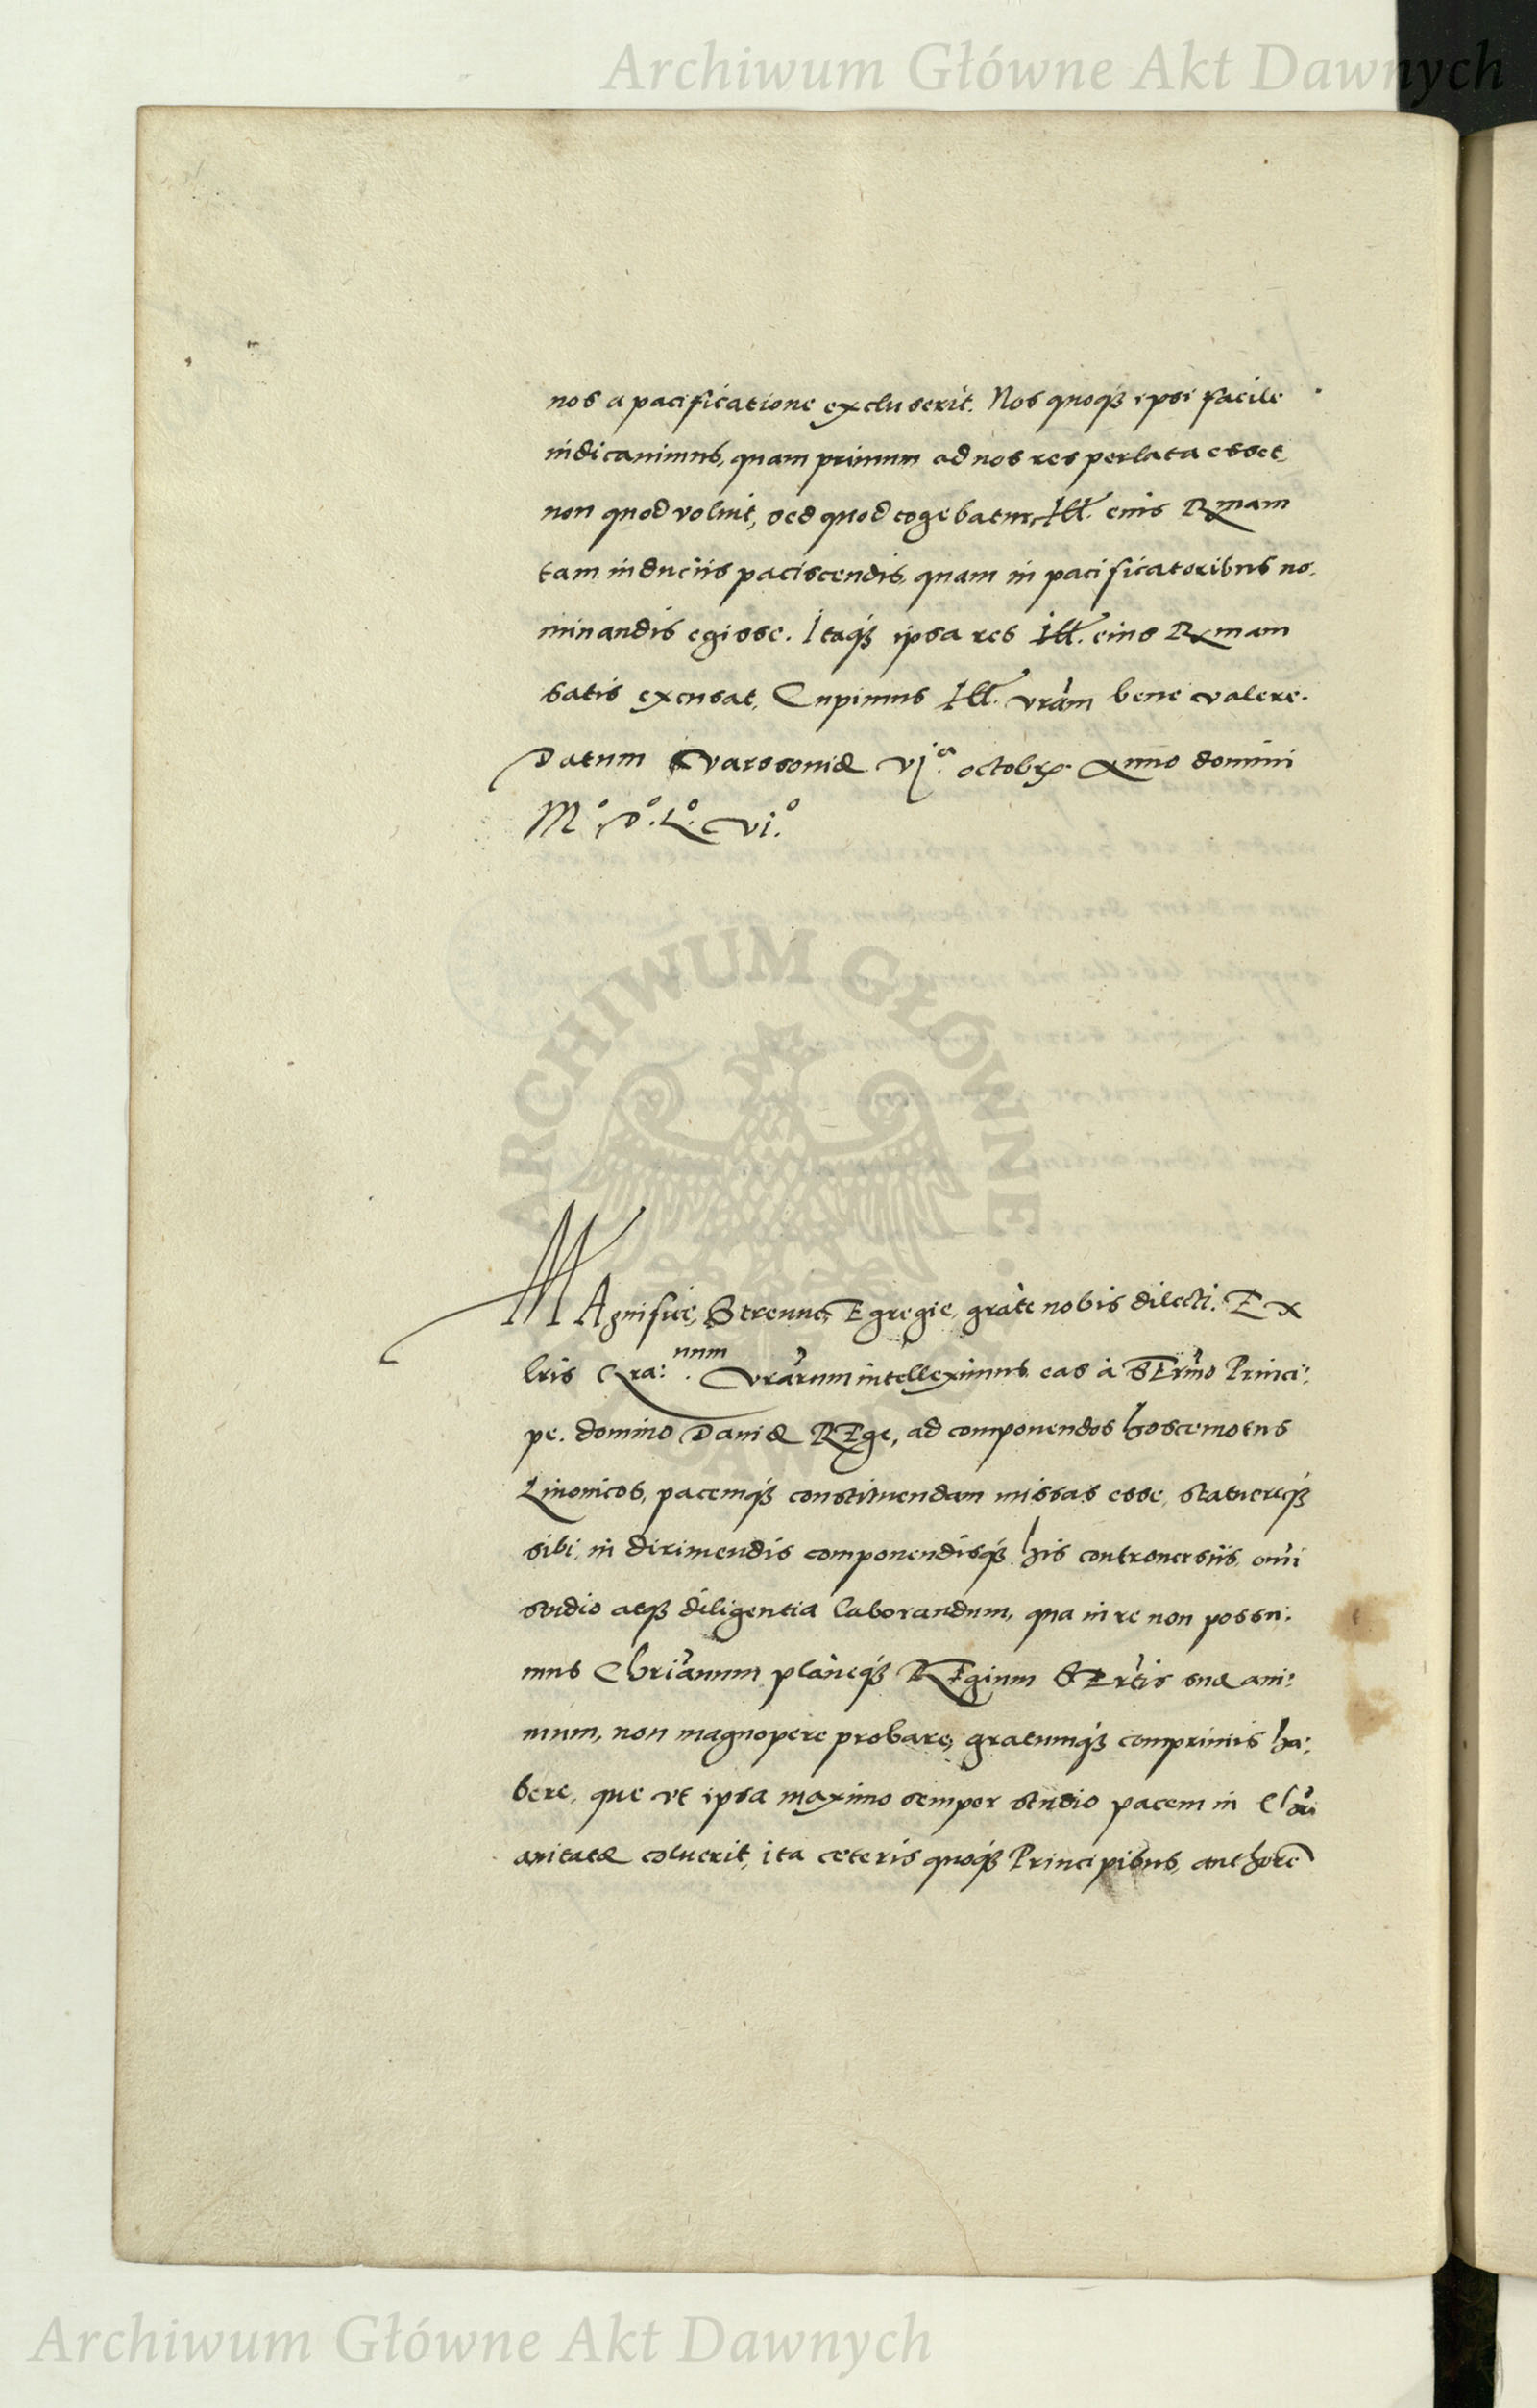 Archiwum Główne Akt Dawnych
nos a pacificatione excluserit. Nos quoqȝ ipsi facile
iudicauimus, quam primum ad nos res perlata esset,
non quod voluit, sed quod cogebatur, Ill. eius Rmam
tam induciis paciscendis, quam in pacificatoribus no:
minandis egisse. Itaqȝ ipsa res Ill. eius Rmam
satis excusat, Cupimus Ill. vram bene valere.
Datum Varssouiæ vj.a octobr. Anno domini
M.o D.o L.o vi.o
ARCHIWUM GŁÓWNE AKT DAWNYCH
MAgnifice, Strenue, Egregie, grate nobis dilecti. Ex
lris Gra: num. Vrarum intelleximus eas à SErmo Princi:
pe. domino Daniæ REge, ad componendos hosce motus
Liuonicos, pacemqȝ constituendam missas esse, statuereqȝ
sibi, in dirimendis componendisqȝ his controuersiis, omi
studio atqȝ diligentia laborandum, qua in re non possu:
mus Chrianum planeqȝ REgium SErtis suæ ani:
mum, non magnopere probare, gratumqȝ comprimis ha:
bere, que vt ipsa maximo semper studio pacem in Chri
anitate coluerit, ita ceteris quoqȝ Principibus, authore
Archiwum Główne Akt Dawnych